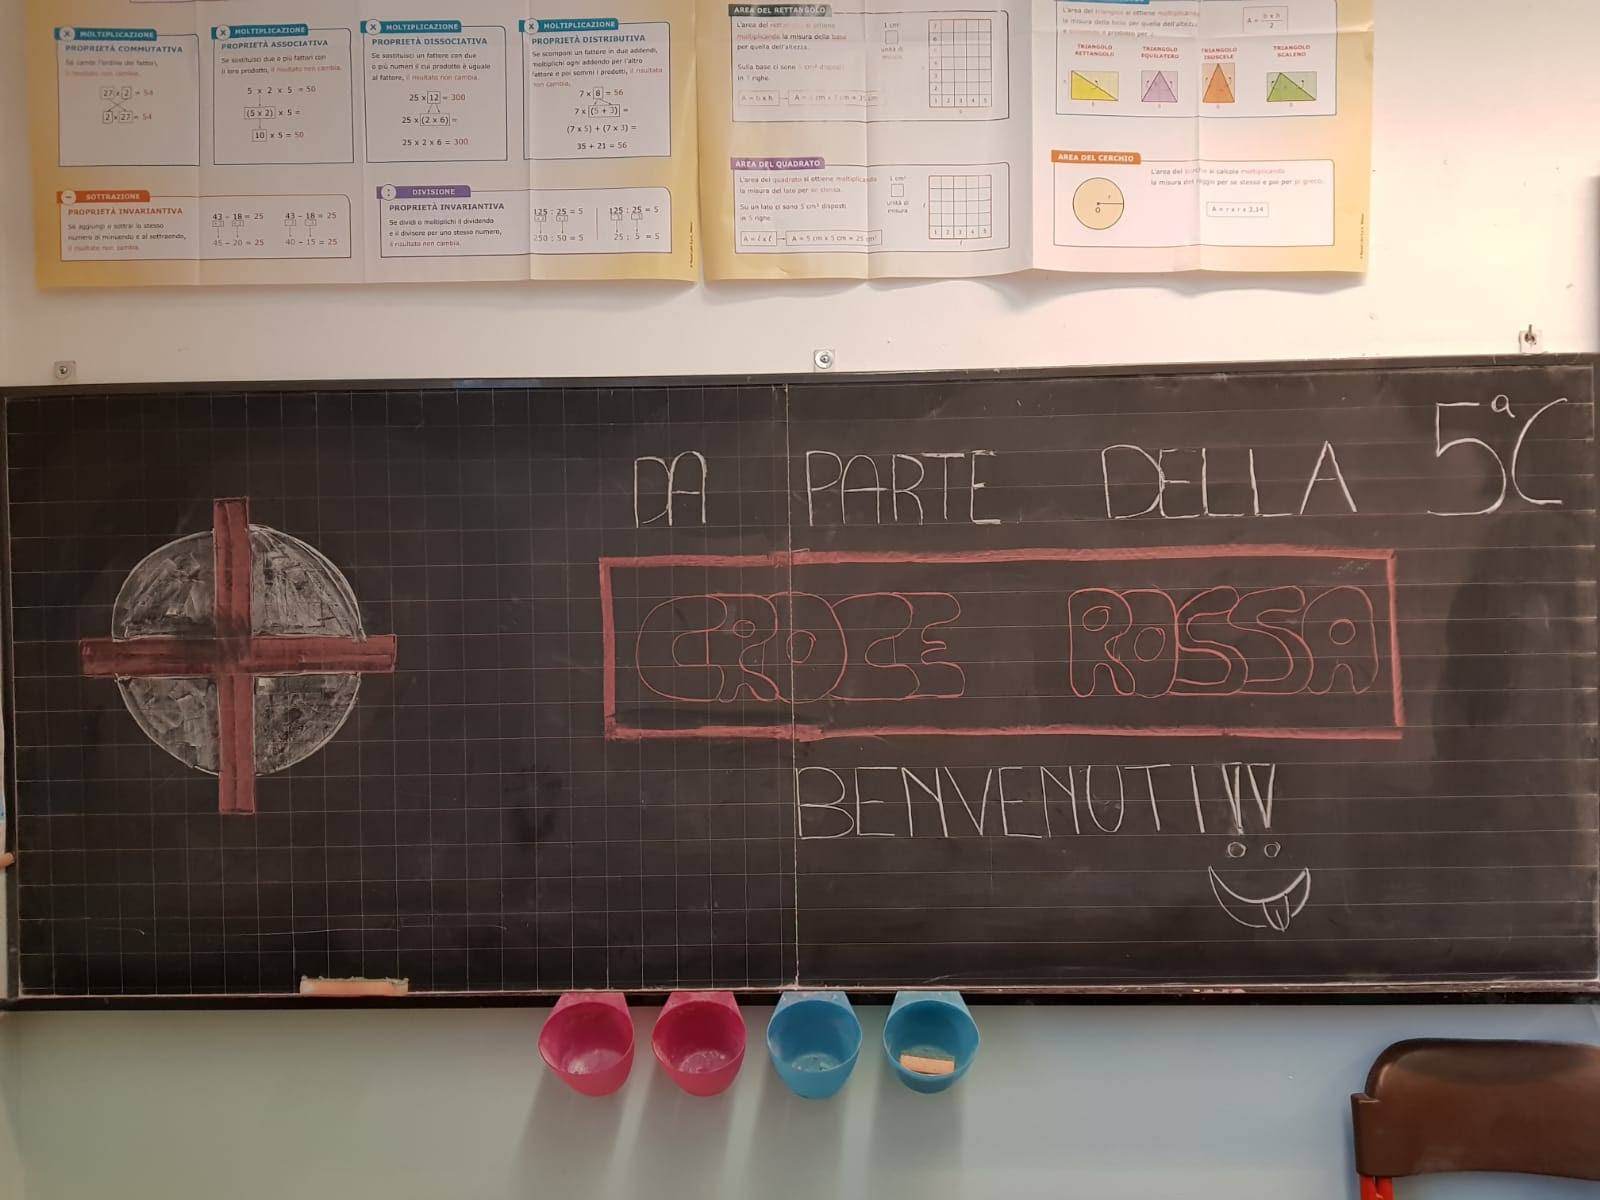 MOLTIPLICAZIONE
PROPRIETÀ COMMUTATIVA
Se cambi l'ordine dei fattori,
il risultato non cambia.
27 x 2 = 54
2 x 27 = 54
MOLTIPLICAZIONE
PROPRIETÀ ASSOCIATIVA
Se sostituisci due o più fattori con
il loro prodotto, il risultato non cambia.
5 x 2 x 5 = 50
(5 x 2) x 5 =
10 x 5 = 50
MOLTIPLICAZIONE
PROPRIETÀ DISSOCIATIVA
Se sostituisci un fattore con due
o più numeri il cui prodotto è uguale
al fattore, il risultato non cambia.
25 x 12 = 300
25 x (2 x 6) =
25 x 2 x 6 = 300
MOLTIPLICAZIONE
PROPRIETÀ DISTRIBUTIVA
Se scomponi un fattore in due addendi,
moltiplichi ogni addendo per l'altro
fattore e poi sommi i prodotti, il risultato
non cambia.
7 x 8 = 56
7 x (5 + 3) =
(7 x 5) + (7 x 3) =
35 + 21 = 56
SOTTRAZIONE
PROPRIETÀ INVARIANTIVA
Se aggiungi o sottrai lo stesso
numero al minuendo e al sottraendo,
il risultato non cambia.
43 – 18 = 25
45 – 20 = 25
43 – 18 = 25
40 – 15 = 25
DIVISIONE
PROPRIETÀ INVARIANTIVA
Se dividi o moltiplichi il dividendo
e il divisore per uno stesso numero,
il risultato non cambia.
125 : 25 = 5
250 : 50 = 5
125 : 25 = 5
25 : 5 = 5
AREA DEL RETTANGOLO
L'area del rettangolo si ottiene
moltiplicando la misura della base
per quella dell'altezza.
Sulla base ci sono 5 cm² disposti
in 7 righe.
A = b x h
A = 5 cm x 7 cm = 35 cm²
1 cm²
unità di
misura
7
6
5
4
3
2
1 2 3 4 5
AREA DEL QUADRATO
L'area del quadrato si ottiene moltiplicando
la misura del lato per se stessa.
Su un lato ci sono 5 cm² disposti
in 5 righe.
A = ℓ x ℓ
A = 5 cm x 5 cm = 25 cm²
1 cm²
unità di
misura
1 2 3 4 5
L'area del triangolo si ottiene moltiplicando
la misura della base per quella dell'altezza
e dividendo il prodotto per 2.
A = b x h
2
TRIANGOLO
RETTANGOLO
TRIANGOLO
EQUILATERO
TRIANGOLO
ISOSCELE
TRIANGOLO
SCALENO
AREA DEL CERCHIO
L'area del cerchio si calcola moltiplicando
la misura del raggio per se stessa e poi per pi greco.
r
O
A = r x r x 3,14
DA PARTE DELLA 5ªC
CROCE ROSSA
BENVENUTI!!!